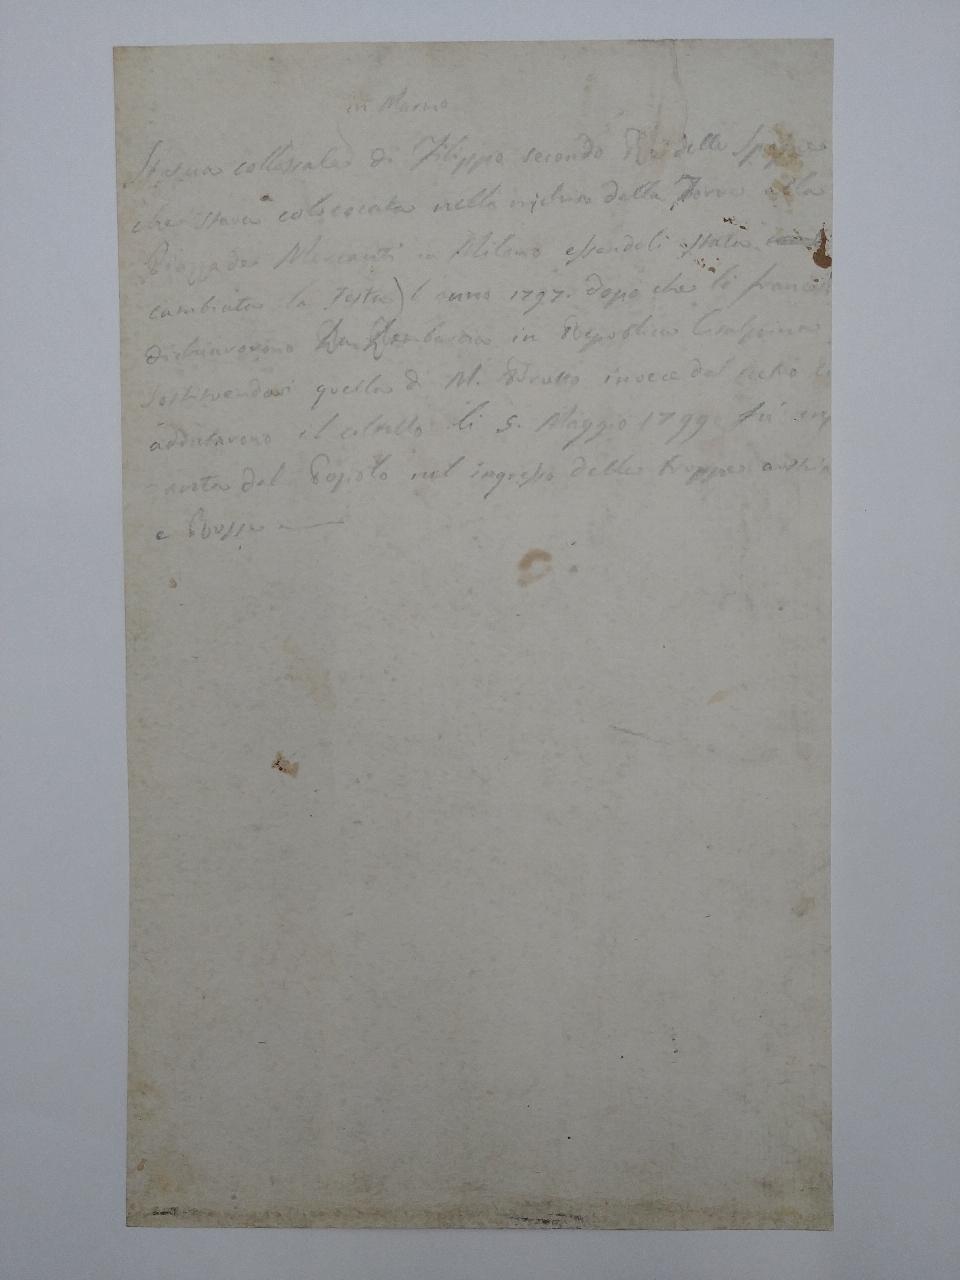 in Marmo
Statua collossale di Filippo secondo Re delle Spagne
che stava colocata nella nichia della Torre alla
Piazza de Mercanti in Milano essendoli stata
cambiata la Testa l anno 1797. dopo che li francesi
dichiararono La Lombardia in Republica Cisalpina
sostituendovi quella di M. Brutto invece del
il coltello li 5. Maggio 1799 fù
dal Popolo nel ingresso delle truppe
e Russe